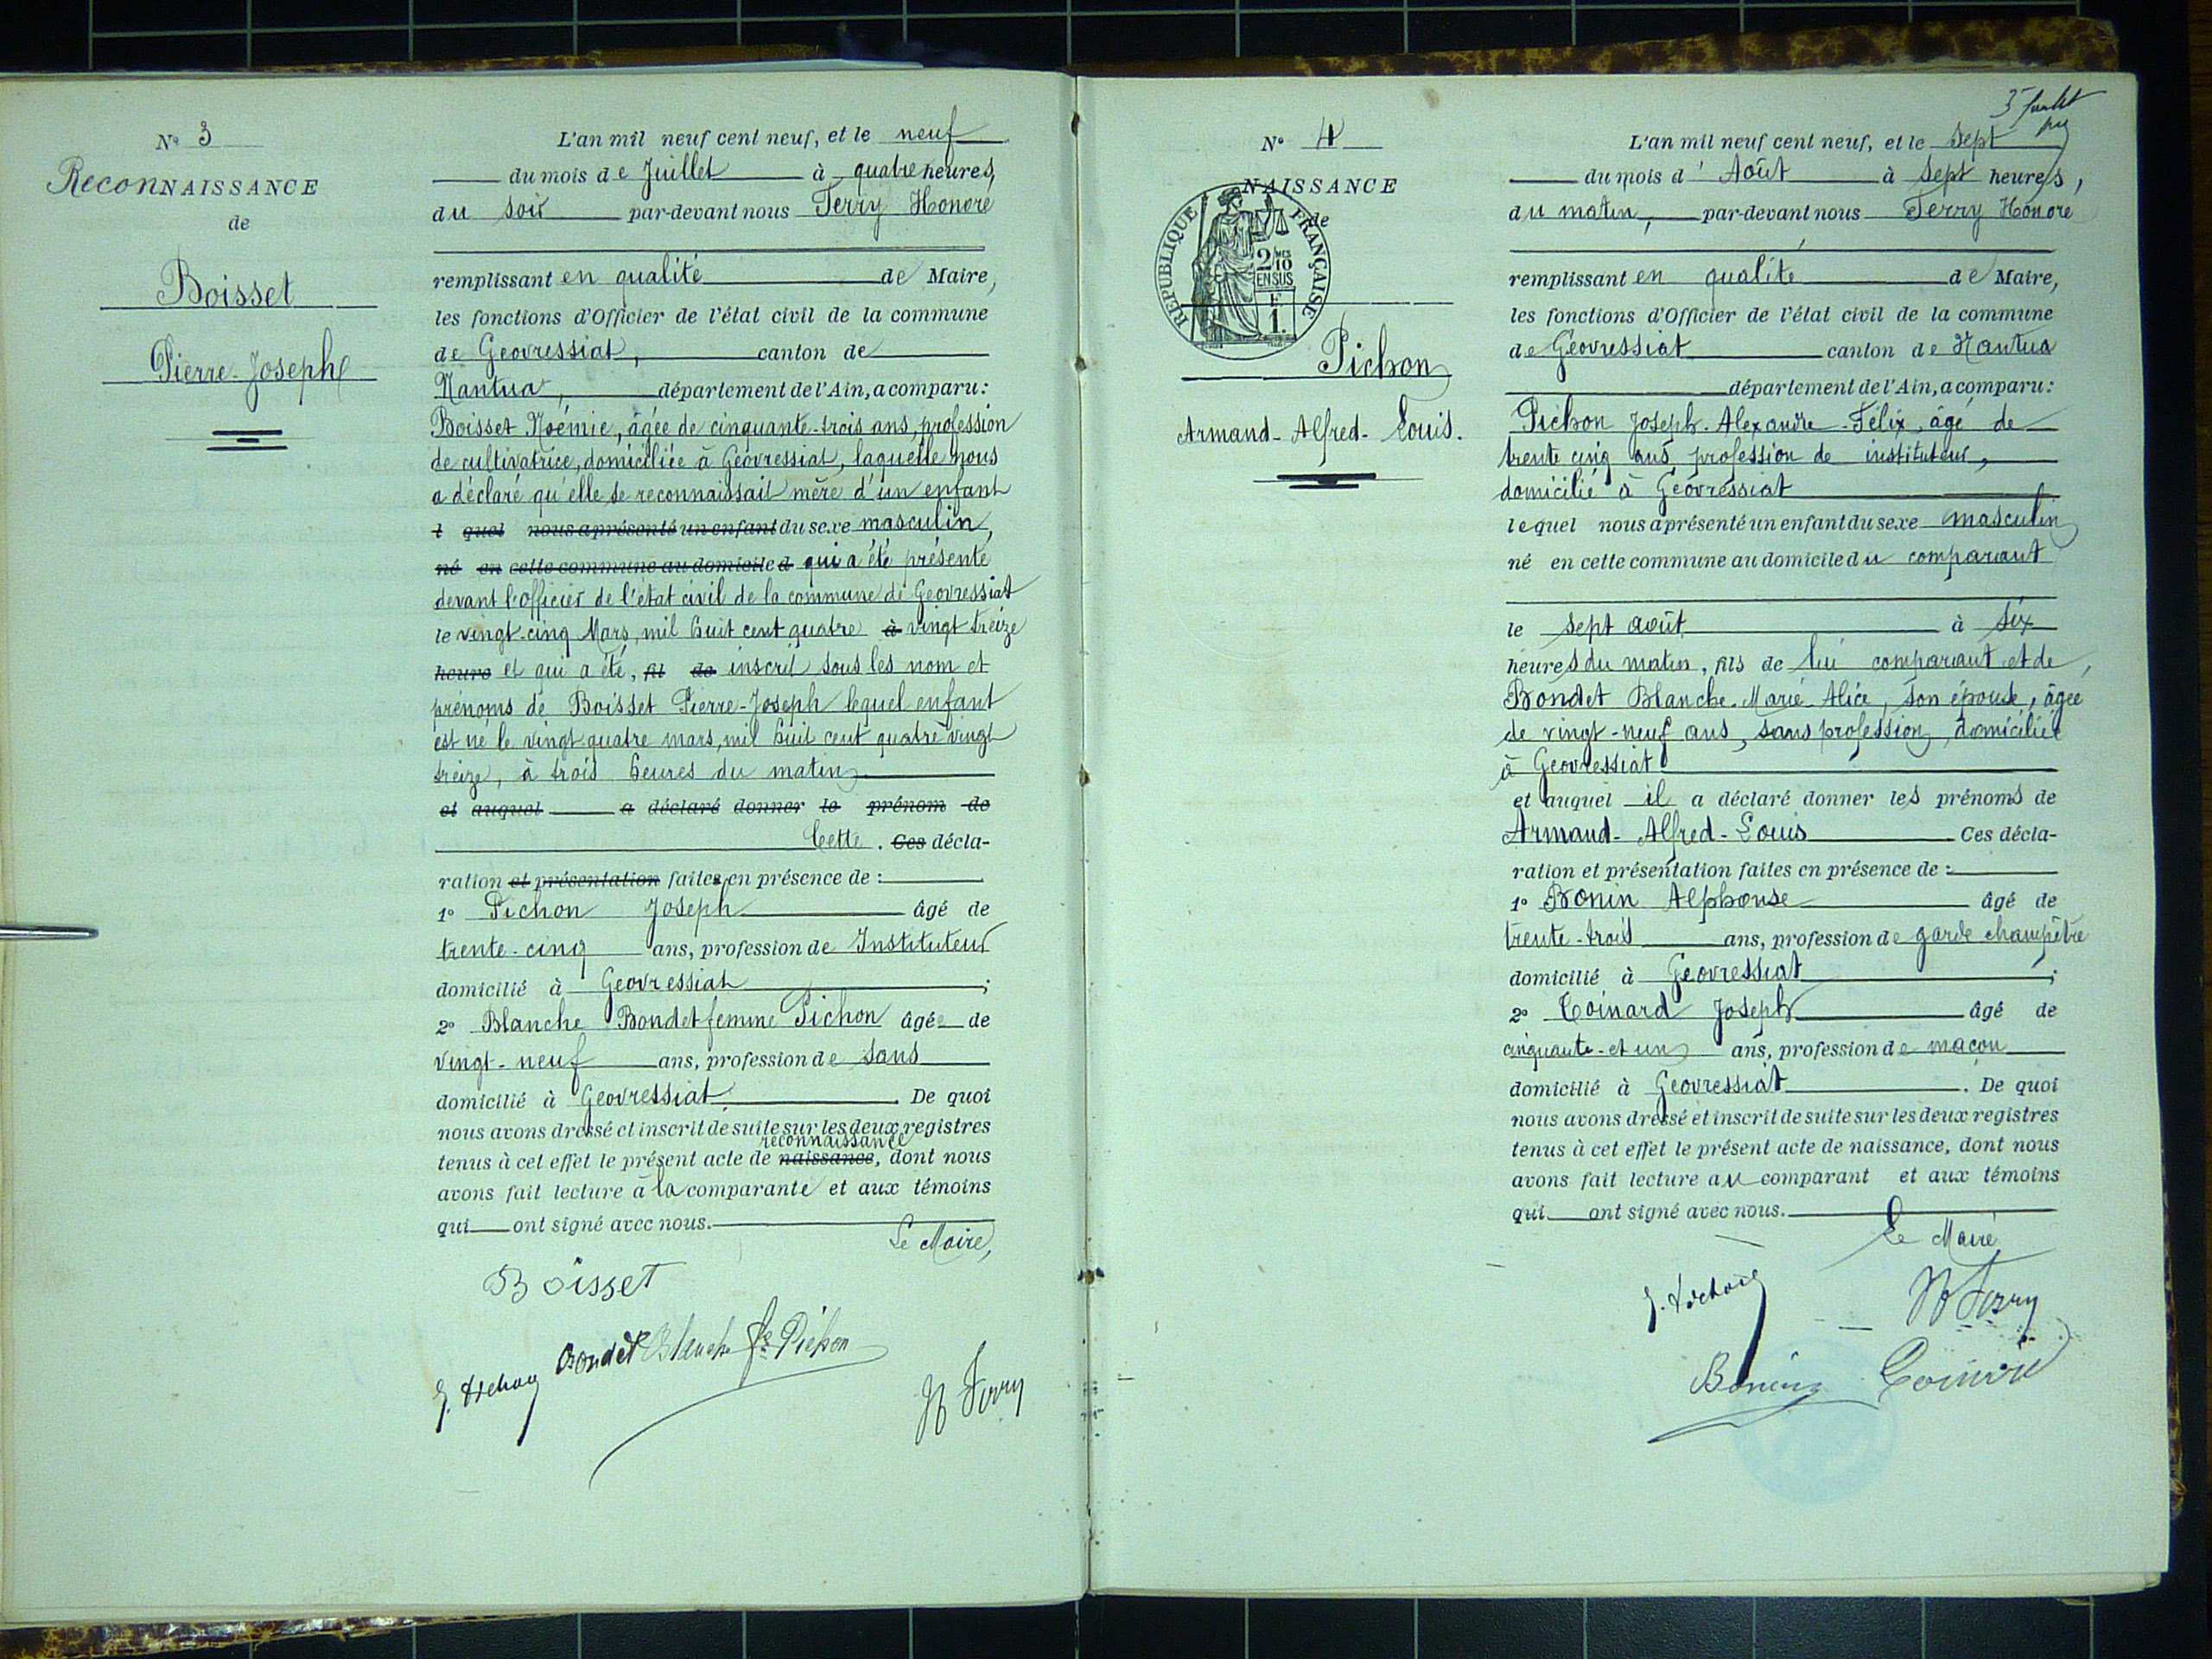 N° 3
RECONNAISSANCE
de
Boisset
Pierre-Joseph
L'an mil neuf cent neuf, et le neuf
du mois de Juillet à quatre heures,
du soir par-devant nous Ferry Honoré
remplissant en qualité de Maire,
les fonctions d'Officier de l'état civil de la commune
de Géovressiat, canton de
Nantua, département de l'Ain, a comparu:
Boisset Noémie, âgée de cinquante-trois ans, profession
de cultivatrice, domiciliée à Géovressiat, laquelle nous
a déclaré qu'elle se reconnaissait mère d'un enfant
l quel nous a présenté un enfant du sexe masculin,
né en cette commune au domicile d qui a été présenté
devant l'officier de l'état civil de la commune de Géovressiat
le vingt-cinq Mars, mil huit cent quatre à vingt treize
heure et qui a été, fil de inscrit sous les nom et
prénoms de Boisset Pierre-Joseph lequel enfant
est né le vingt quatre mars, mil huit cent quatre vingt
treize, à trois heures du matin
et auquel a déclaré donner le prénom de
Cette. Ces décla-
ration et présentation faites en présence de :
1° Pichon Joseph âgé de
trente-cinq ans, profession de Instituteur
domicilié à Géovressiat ;
2° Blanche Bondet femme Pichon âgée de
vingt-neuf ans, profession de sans
domicilié à Géovressiat. De quoi
nous avons dressé et inscrit de suite sur les deux registres
reconnaissance
tenus à cet effet le présent acte de naissance, dont nous
avons fait lecture à la comparante et aux témoins
qui ont signé avec nous.
Le Maire,
Boisset
J. Pichon Bondet Blanche fe Pichon
H Ferry
N° 4
NAISSANCE
de
RÉPUBLIQUE FRANÇAISE
2/10
EN SUS
F.
1.
Pichon
Armand-Alfred-Louis.
L'an mil neuf cent neuf, et le sept
du mois d'Août à sept heures,
du matin, par-devant nous Ferry Honoré
remplissant en qualité de Maire,
les fonctions d'Officier de l'état civil de la commune
de Géovressiat canton de Nantua
département de l'Ain, a comparu:
Pichon Joseph-Alexandre-Félix, âgé de
trente cinq ans, profession de instituteur,
domicilié à Géovressiat
lequel nous a présenté un enfant du sexe masculin
né en cette commune au domicile du comparant
le sept août à six
heures du matin, fils de lui comparant et de,
Bondet Blanche-Marie-Alice, son épouse, âgée
de vingt-neuf ans, sans profession, domiciliée
à Géovressiat
et auquel il a déclaré donner les prénoms de
Armand-Alfred-Louis Ces décla-
ration et présentation faites en présence de :
1° Bonin Alphonse âgé de
trente-trois ans, profession de garde champêtre
domicilié à Géovressiat ;
2° Coinard Joseph âgé de
cinquante-et un ans, profession de maçon
domicilié à Géovressiat. De quoi
nous avons dressé et inscrit de suite sur les deux registres
tenus à cet effet le présent acte de naissance, dont nous
avons fait lecture au comparant et aux témoins
qui ont signé avec nous.
Le Maire
J. Pichon H Ferry
Bonin Coinard